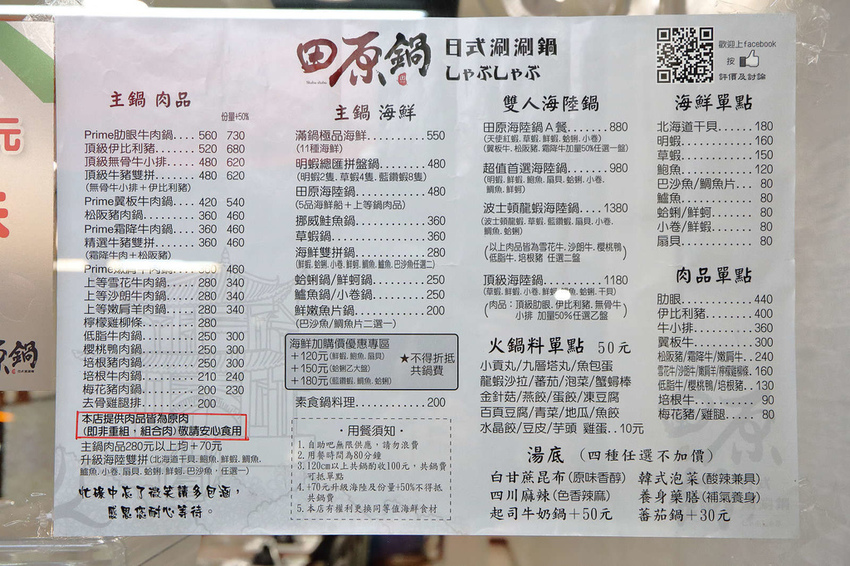 田原鍋
日式涮涮鍋
しゃぶしゃぶ
歡迎上facebook
按
評價及討論
主鍋 肉品
份量+50%
Prime肋眼牛肉鍋....560 730
頂級伊比利豬........520 680
頂級無骨牛小排....480 620
頂級牛豬雙拼........480 620
(無骨牛小排+伊比利豬)
Prime翼板牛肉鍋...420 540
松阪豬肉鍋............360 460
Prime霜降牛肉鍋...360 460
精選牛豬雙拼........360 460
(霜降牛肉+松阪豬)
Prime嫩肩牛肉鍋 460
上等雪花牛肉鍋....280 340
上等沙朗牛肉鍋....280 340
上等嫩肩羊肉鍋....280 340
檸檬雞柳條............280
低脂牛肉鍋............250 300
櫻桃鴨肉鍋............250 300
培根豬肉鍋............250 300
培根牛肉鍋............210 240
梅花豬肉鍋............200 230
去骨雞腿排............200
本店提供肉品皆為原肉
(即非重組,組合肉)敬請安心食用
主鍋肉品280元以上均+70元
升級海陸雙拼(北海道干貝,鮑魚,鮮蝦,鯛魚,
鱸魚,小卷,扇貝,草蝦,蛤蜊,鮮蚵,巴沙魚,任選一)
忙碌中忘了微笑請多包涵,
感恩您耐心等待。
主鍋 海鮮
滿鍋極品海鮮............550
(11種海鮮)
明蝦總匯拼盤鍋........480
(明蝦2隻,草蝦4隻,藍鑽蝦8隻)
田原海陸鍋................480
(5品海鮮船+上等鍋肉品)
挪威鮭魚鍋................360
草蝦鍋........................360
海鮮雙拼鍋................280
(鮮蝦,蛤蜊,小卷,鮮蚵,鯛魚,鱸魚,巴沙魚任選二)
蛤蜊鍋/鮮蚵鍋..........250
鱸魚鍋/小卷鍋..........250
鮮嫩魚片鍋................200
(巴沙魚/鯛魚片二選一)
海鮮加購價優惠專區
+120元(鮮蝦,鮑魚,扇貝)
+150元(蛤蜊乙大盤)
+180元(藍鑽蝦,鯛魚,蛤蜊)
★不得折抵
共鍋費
素食鍋料理................200
·用餐須知·
1.自助吧無限供應,請勿浪費
2.用餐時間為80分鐘
3.120cm以上共鍋酌收100元,共鍋費
可抵單點
4.+70元升級海陸及份量+50%不得抵
共鍋費
5.本店有權利更換同等值海鮮食材
雙人海陸鍋
田原海陸鍋A餐...........880
(天使紅蝦,草蝦,鮮蝦,蛤蜊,小卷)
(翼板牛,松阪豬,霜降牛加量50%任選一盤)
超值首選海陸鍋...........980
(明蝦,鮮蝦,鮑魚,扇貝,蛤蜊,小卷,
鯛魚,鮮蚵)
波士頓龍蝦海陸鍋....1380
(波士頓龍蝦,草蝦,藍鑽蝦,扇貝,小卷,
鯛魚,蛤蜊)
(以上肉品皆為雪花牛,沙朗牛,櫻桃鴨
低脂牛,培根豬 任選二盤)
頂級海陸鍋................1180
(草蝦,鮮蝦,小卷,鮮蚵,鮑魚,蛤蜊,干貝)
(肉品:頂級肋眼,伊比利豬,無骨牛
小排 加量50%任選乙盤)
火鍋料單點 50元
小貢丸/九層塔丸/魚包蛋
龍蝦沙拉/蕃茄/泡菜/蟹婦棒
金針菇/燕餃/蛋餃/凍豆腐
百頁豆腐/青菜/地瓜/魚餃
水晶餃/豆皮/芋頭 雞蛋..10元
海鮮單點
北海道干貝........180
明蝦....................160
草蝦....................150
鮑魚....................120
巴沙魚/鯛魚片... 80
鱸魚.................... 80
蛤蜊/鮮蚵.......... 80
小卷/鮮蝦.......... 80
扇貝.................... 80
肉品單點
肋眼....................440
伊比利豬............400
牛小排................360
翼板牛................300
松阪豬/霜降牛/嫩肩牛..240
雪花牛/沙朗牛/嫩肩羊/檸檬雞柳條..160
低脂牛/櫻桃鴨/培根豬.130
培根牛................ 90
梅花豬/雞腿....... 80
湯底 (四種任選不加價)
白甘蔗昆布(原味香醇) 韓式泡菜(酸辣兼具)
四川麻辣(色香辣麻) 養身藥膳(補氣養身)
起司牛奶鍋+50元 蕃茄鍋+30元
元
原鍋